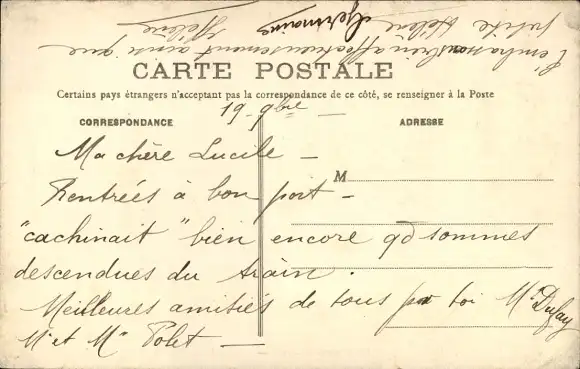 CARTE POSTALE
Certains pays étrangers n'acceptant pas la correspondance de ce côté, se renseigner à la Poste
19 - 9bre -
CORRESPONDANCE
ADRESSE
Ma chère Lucile -
M
Rentrées à bon port -
"cachinait" bien encore qd sommes
descendues du train.
Meilleures amitiés de tous pr toi Mr
Mr et Me Polet -
T'embrassons bien affectueusement ainsi que
petite Hélène Germaine
Hélène